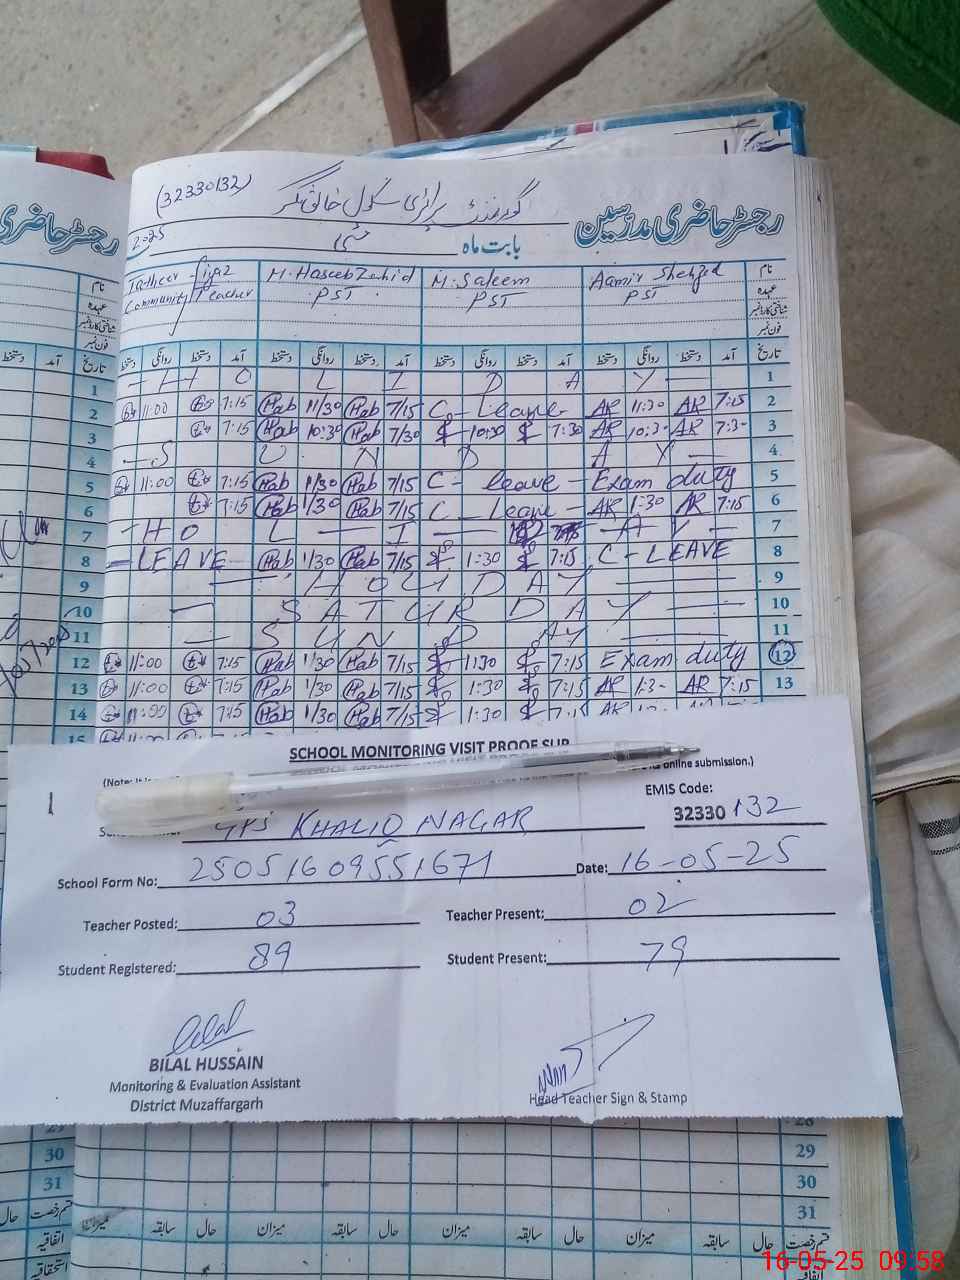 (32330132) گورنمنٹ پرائمری سکول خالق نگر
رجسٹر حاضری مدرسین
بابت ماہ مئی 2025
Community Teacher
M. Haseeb Zahid
PST
M. Saleem
PST
Aamir Shehzad
PST
نام
عہدہ
شناختی کارڈ نمبر
فون نمبر
دستخط روانگی دستخط آمد دستخط روانگی دستخط آمد دستخط روانگی دستخط آمد دستخط روانگی دستخط آمد تاریخ
1 H O L I D A Y 1
2 11:00 7:15 Hab 11/30 Hab 7/15 C - Leave - AR 11:30 AR 7:15 2
3 7:15 Hab 10:30 Hab 7/30 10:30 7:30 AR 10:3- AR 7:3- 3
4 S U N D A Y 4
5 11:00 7:15 Hab 1/30 Hab 7/15 C - leave - Exam duty 5
6 7:15 Hab 1/30 Hab 7/15 C - Leave - AR 1:30 AR 7:15 6
7 - H O L I A Y - 7
8 - LEAVE - Hab 1/30 Hab 7/15 1:30 7:15 C - LEAVE 8
9 HOLIDAY 9
10 SATURDAY 10
11 SUNDAY 11
12 11:00 7:15 Hab 1/30 Hab 7/15 1:30 7:15 Exam duty 12
13 11:00 7:15 Hab 1/30 Hab 7/15 1:30 7:15 AR 1:3- AR 7:15 13
14 11:00 7:15 Hab 1/30 Hab 7/15 1:30 14
15 11:00
SCHOOL MONITORING VISIT PROOF SLIP
(Note: online submission.)
GPS KHALIQ NAGAR
EMIS Code:
32330 132
School Form No: 25051609551671 Date: 16-05-25
Teacher Posted: 03 Teacher Present: 02
Student Registered: 89 Student Present: 79
Bilal
BILAL HUSSAIN
Monitoring & Evaluation Assistant
District Muzaffargarh
Head Teacher Sign & Stamp
28
29
30 30
31 31
میزان سابقہ حال میزان سابقہ حال میزان سابقہ حال میزان سابقہ حال قسم رخصت
قسم رخصت حال
اتفاقیہ
استحقاقیہ
16-05-25 09:58